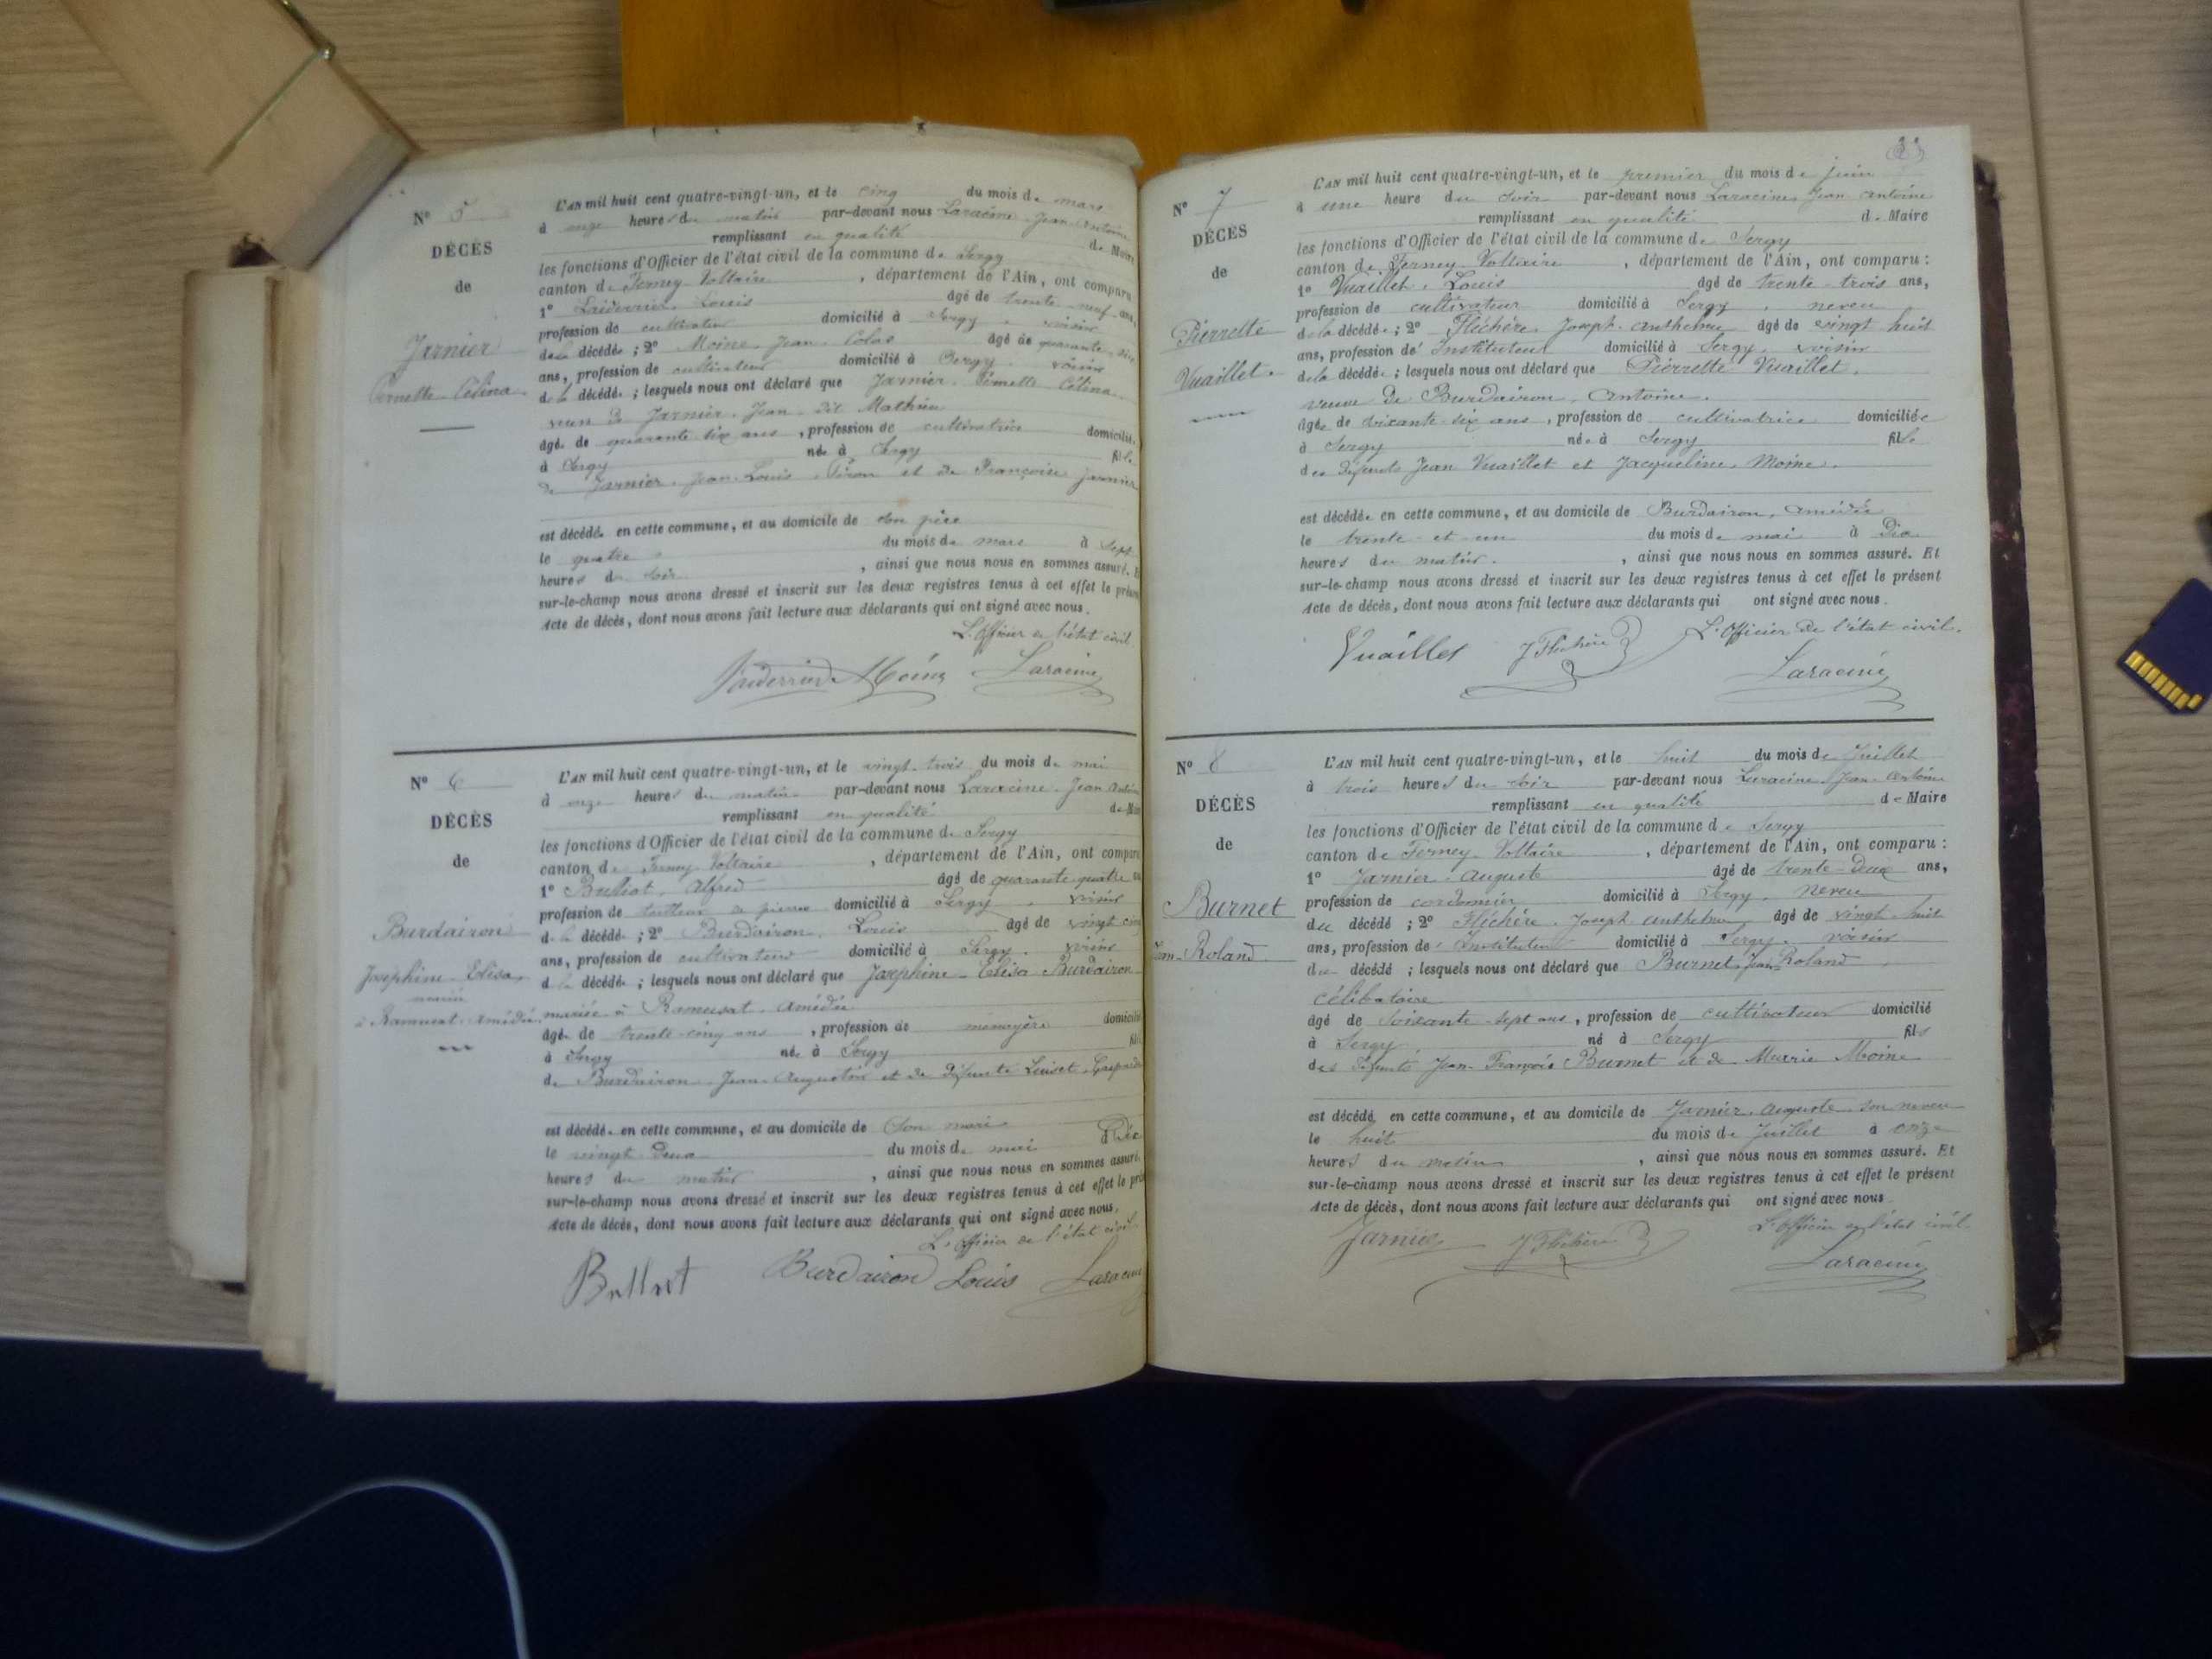 N° 5
DÉCÈS
de
Jarnier
Pernette Célina
L'AN mil huit cent quatre-vingt-un, et le cinq du mois de mars
à onze heures du matin par-devant nous Laracine Jean Antoine
remplissant en qualité de Maire
les fonctions d'Officier de l'état civil de la commune de Sergy
canton de Ferney-Voltaire, département de l'Ain, ont comparu
1° Louis âgé de trente-neuf ans,
profession de cultivateur domicilié à Sergy, voisin
de la décédée; 2° Moine, Jean Colas âgé de quarante-six
ans, profession de cultivateur domicilié à Sergy, voisin
de la décédée; lesquels nous ont déclaré que Jarnier, Pernette Célina
de Jarnier, Jean dit Mathieu
âgée de quarante six ans, profession de cultivatrice domiciliée
à Sergy née à Sergy fille
de Jarnier, Jean-Louis et de Françoise Jarnier
est décédée en cette commune, et au domicile de son père
le quatre du mois de mars à sept
heures du soir, ainsi que nous nous en sommes assuré. Et
sur-le-champ nous avons dressé et inscrit sur les deux registres tenus à cet effet le présent
Acte de décès, dont nous avons fait lecture aux déclarants qui ont signé avec nous.
L'Officier de l'état civil.
Moine Laracine
N° 6
DÉCÈS
de
Burdairon
Joséphine Elisa
mariée
à Ramusat Amédée
L'AN mil huit cent quatre-vingt-un, et le vingt-trois du mois de mai
à onze heures du matin par-devant nous Laracine Jean Antoine
remplissant en qualité de Maire
les fonctions d'Officier de l'état civil de la commune de Sergy
canton de Ferney Voltaire, département de l'Ain, ont comparu
1° Bulliat, Alfred âgé de quarante-quatre ans
profession de tailleur de pierre domicilié à Sergy, voisin
de la décédée; 2° Burdairon, Louis âgé de vingt cinq
ans, profession de cultivateur domicilié à Sergy, voisin
de la décédée; lesquels nous ont déclaré que Joséphine-Elisa Burdairon
mariée à Ramusat Amédée
âgée de trente-cinq ans, profession de ménagère domiciliée
à Sergy née à Sergy fille
de Burdairon Jean-Augustin et de défunte
est décédée en cette commune, et au domicile de Son mari
le vingt deux du mois de mai à Dix
heures du matin, ainsi que nous nous en sommes assuré.
sur-le-champ nous avons dressé et inscrit sur les deux registres tenus à cet effet le présent
Acte de décès, dont nous avons fait lecture aux déclarants qui ont signé avec nous.
L'Officier de l'état civil.
Burdairon Louis Laracine
N° 7
DÉCÈS
de
Pierrette
Vuaillet.
L'AN mil huit cent quatre-vingt-un, et le premier du mois de juin
à une heure du soir par-devant nous Laracine, Jean Antoine
remplissant en qualité de Maire
les fonctions d'Officier de l'état civil de la commune de Sergy
canton de Ferney-Voltaire, département de l'Ain, ont comparu:
1° Vuaillet, Louis âgé de trente-trois ans,
profession de cultivateur domicilié à Sergy, neveu
de la décédée; 2° Fléchère, Joseph-Anthelme âgé de vingt huit
ans, profession de Instituteur domicilié à Sergy, voisin
de la décédée; lesquels nous ont déclaré que Pierrette Vuaillet,
veuve de Burdairon, Antoine.
âgée de soixante-six ans, profession de cultivatrice domiciliée
à Sergy née à Sergy fille
des défunts Jean Vuaillet et Jacqueline Moine.
est décédée en cette commune, et au domicile de Burdairon, Amédée
le trente-et-un du mois de mai à Dix
heures du matin., ainsi que nous nous en sommes assuré. Et
sur-le-champ nous avons dressé et inscrit sur les deux registres tenus à cet effet le présent
Acte de décès, dont nous avons fait lecture aux déclarants qui ont signé avec nous.
L'Officier de l'état civil.
Vuaillet J Fléchère Laracine
N° 8
DÉCÈS
de
Burnet
Jean-Roland
L'AN mil huit cent quatre-vingt-un, et le huit du mois de Juillet
à trois heures du soir par-devant nous Laracine Jean-Antoine
remplissant en qualité de Maire
les fonctions d'Officier de l'état civil de la commune de Sergy
canton de Ferney-Voltaire, département de l'Ain, ont comparu:
1° Jarnier Auguste âgé de trente-deux ans,
profession de cordonnier domicilié à Sergy, neveu
du décédé; 2° Fléchère, Joseph Anthelme âgé de vingt-huit
ans, profession de Instituteur domicilié à Sergy, voisin
du décédé; lesquels nous ont déclaré que Burnet Jean Roland
célibataire
âgé de Soixante-sept ans, profession de cultivateur domicilié
à Sergy né à Sergy fils
des défunts Jean-François Burnet et de Marie Moine
est décédé en cette commune, et au domicile de Jarnier Auguste son neveu
le huit du mois de Juillet à onze
heures du matin, ainsi que nous nous en sommes assuré. Et
sur-le-champ nous avons dressé et inscrit sur les deux registres tenus à cet effet le présent
Acte de décès, dont nous avons fait lecture aux déclarants qui ont signé avec nous.
L'Officier de l'état civil.
Jarnier J Fléchère Laracine